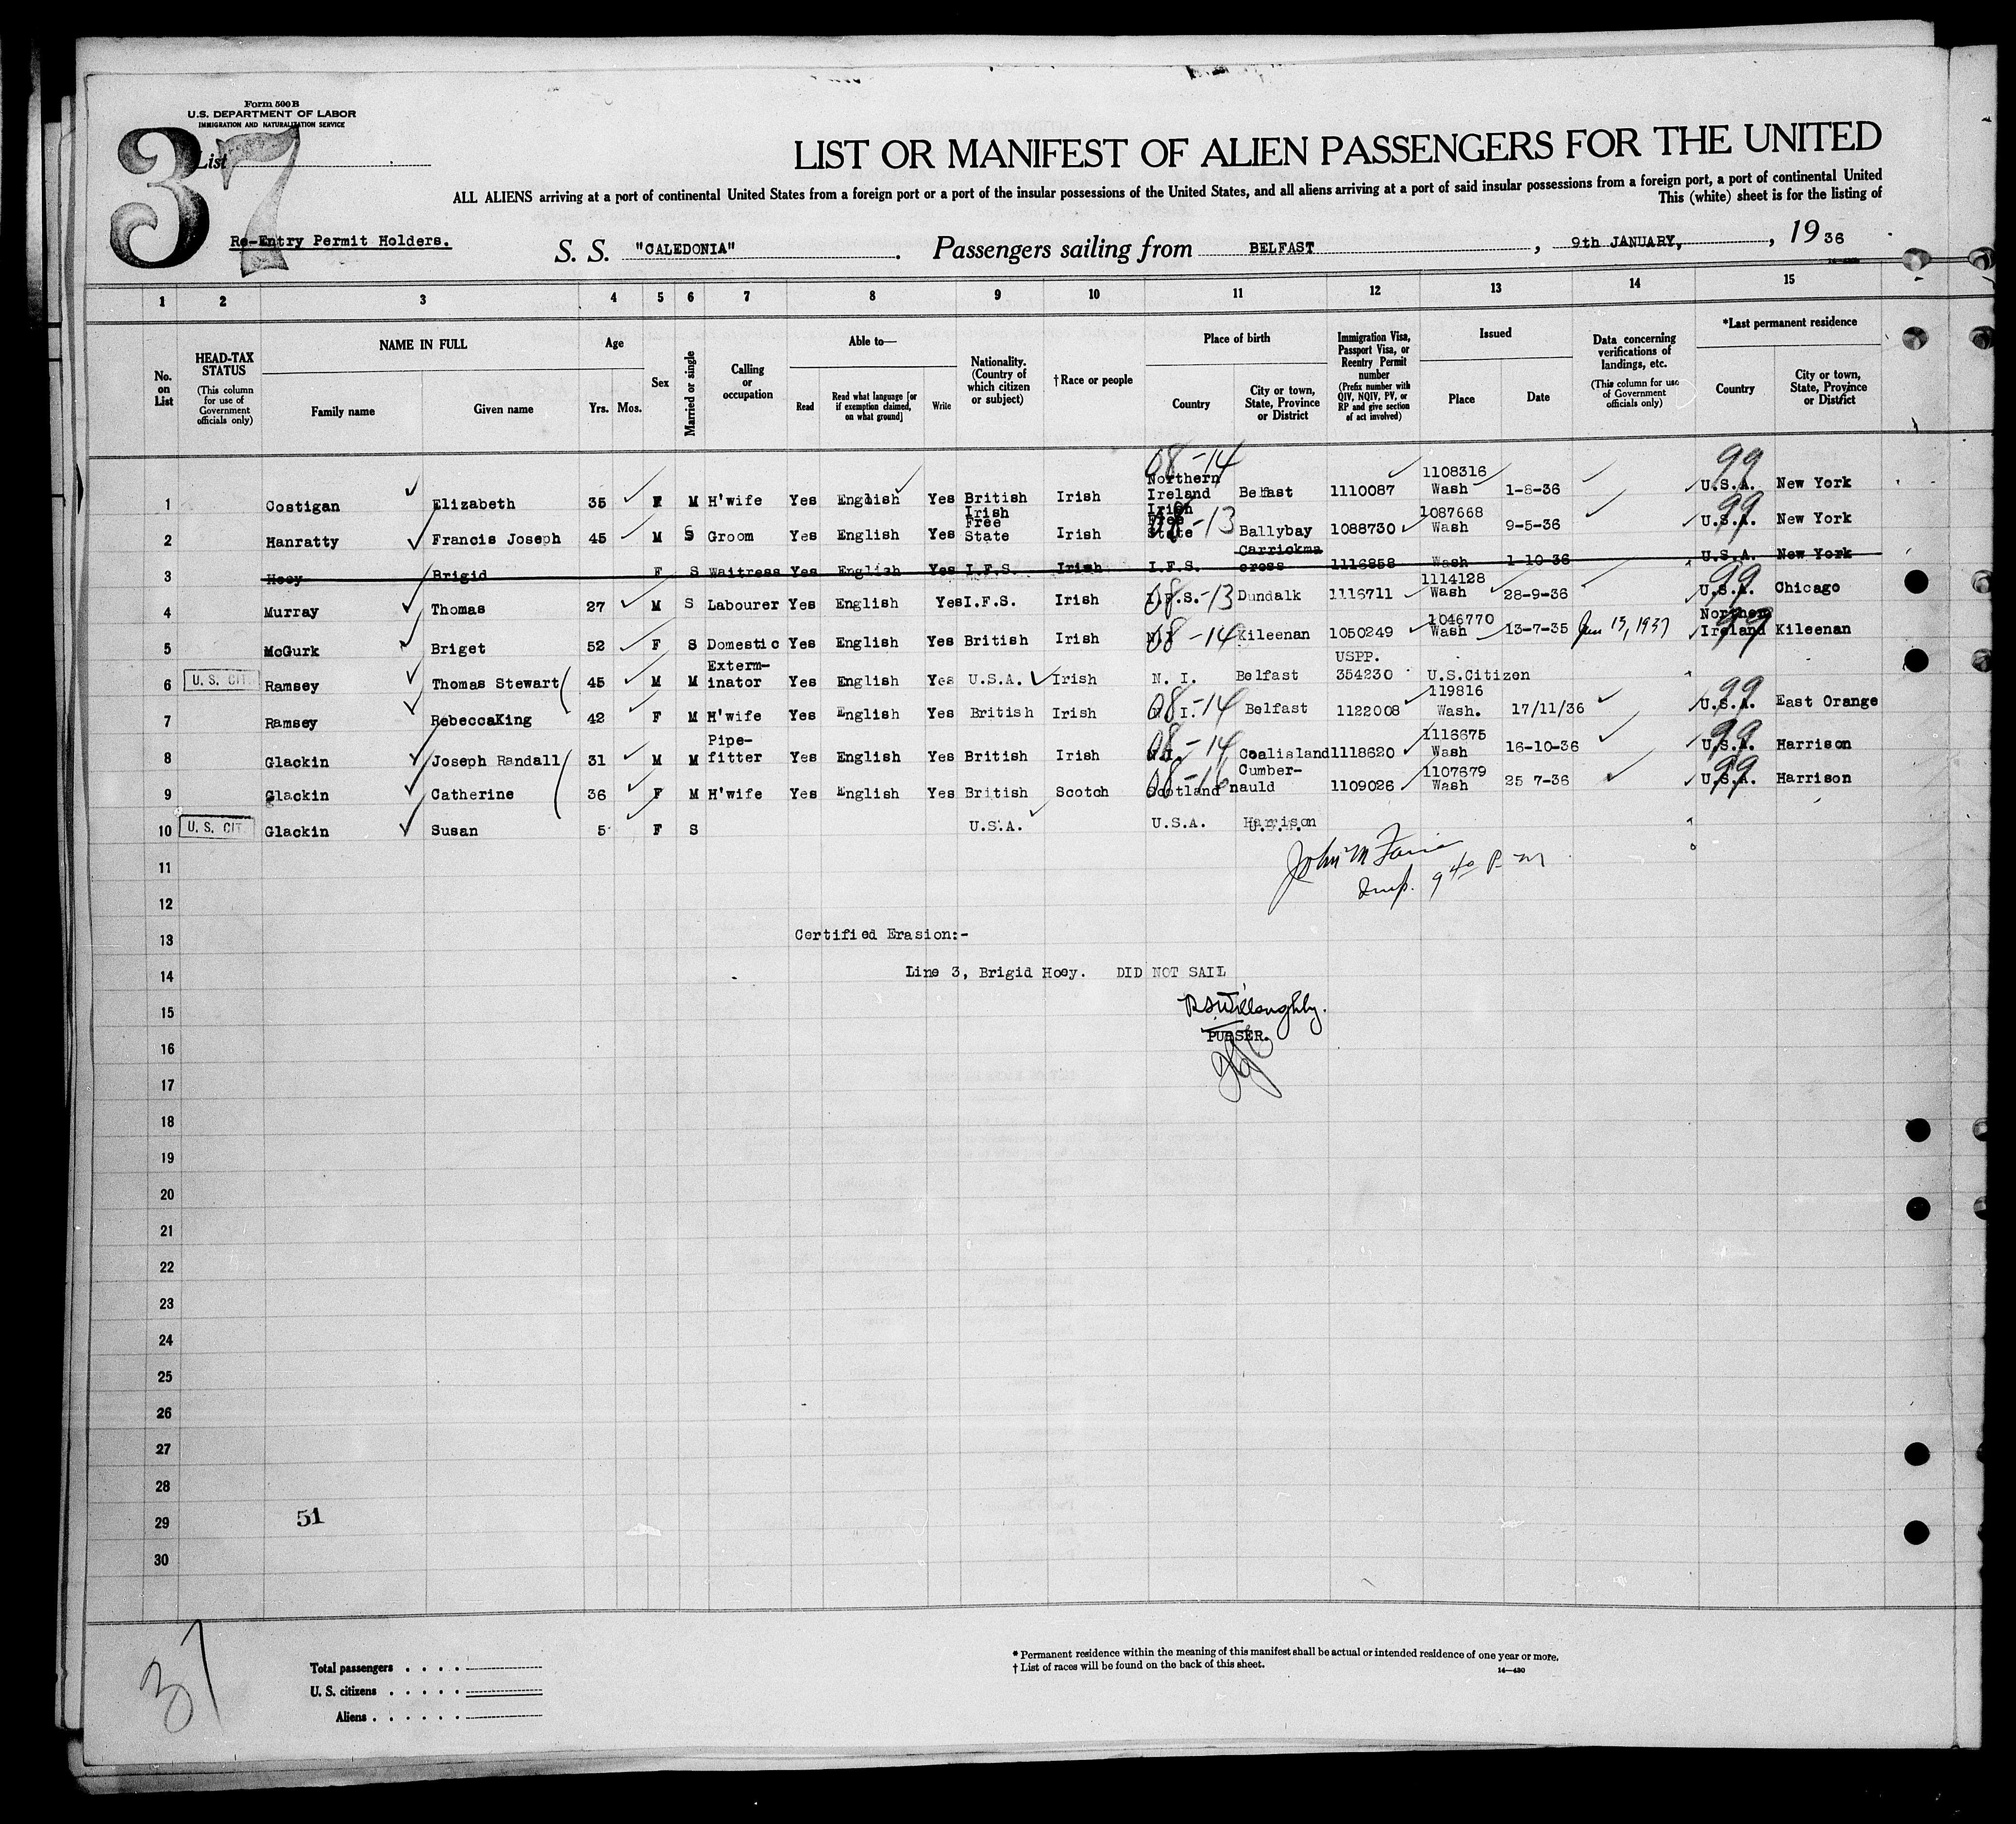 Form 500 B
U.S. DEPARTMENT OF LABOR
IMMIGRATION AND NATURALIZATION SERVICE
37
List
LIST OR MANIFEST OF ALIEN PASSENGERS FOR THE UNITED
ALL ALIENS arriving at a port of continental United States from a foreign port or a port of the insular possessions of the United States, and all aliens arriving at a port of said insular possessions from a foreign port, a port of continental United
This (white) sheet is for the listing of
Re-Entry Permit Holders.
S. S. "CALEDONIA". Passengers sailing from BELFAST, 9th JANUARY, 1936
1 2 3 4 5 6 7 8 9 10 11 12 13 14 15
No. on List
HEAD-TAX STATUS (This column for use of Government officials only)
NAME IN FULL
Family name Given name
Age
Yrs. Mos.
Sex
Married or single
Calling or occupation
Able to—
Read Read what language [or if exemption claimed, on what ground] Write
Nationality. (Country of which citizen or subject)
†Race or people
Place of birth
Country City or town, State, Province or District
Immigration Visa, Passport Visa, or Reentry Permit number (Prefix number with QIV, NQIV, PV, or RP and give section of act involved)
Issued
Place Date
Data concerning verifications of landings, etc. (This column for use of Government officials only)
*Last permanent residence
Country City or town, State, Province or District
1 Costigan Elizabeth 35 F M H'wife Yes English Yes British Irish 08-14 Northern Ireland Belfast 1110087 1108316 Wash 1-8-36 99 U.S.A. New York
2 Hanratty Francis Joseph 45 M S Groom Yes English Yes Irish Free State Irish Irish Free State 08-13 Ballybay 1088730 1087668 Wash 9-5-36 99 U.S.A. New York
3 Hoey Brigid F S Waitress Yes English Yes I.F.S. Irish I.F.S. Carrickmacross 1116858 Wash 1-10-36 U.S.A. New York
4 Murray Thomas 27 M S Labourer Yes English Yes I.F.S. Irish I.F.S. 08-13 Dundalk 1116711 1114128 Wash 28-9-36 99 U.S.A. Chicago
5 McGurk Briget 52 F S Domestic Yes English Yes British Irish N.I. 08-14 Kileenan 1050249 1046770 Wash 13-7-35 Jan 13, 1937 99 Northern Ireland Kileenan
6 U. S. CIT. Ramsey Thomas Stewart 45 M M Exterm-inator Yes English Yes U.S.A. Irish N. I. Belfast USPP. 354230 U.S.Citizen
7 Ramsey RebeccaKing 42 F M H'wife Yes English Yes British Irish N.I. 08-14 Belfast 1122008 119816 Wash. 17/11/36 99 U.S.A. East Orange
8 Glackin Joseph Randall 31 M M Pipe-fitter Yes English Yes British Irish N.I. 08-14 Coalisland 1118620 1116675 Wash 16-10-36 99 U.S.A. Harrison
9 Glackin Catherine 36 F M H'wife Yes English Yes British Scotch Scotland 08-16 Cumber-nauld 1109026 1107679 Wash 25 7-36 99 U.S.A. Harrison
10 U. S. CIT Glackin Susan 5 F S U.S.A. U.S.A. Harrison
11
12
13
14
15
16
17
18
19
20
21
22
23
24
25
26
27
28
29
30
John M
Insp. 9 40 P-M
Certified Erasion:-
Line 3, Brigid Hoey. DID NOT SAIL
Willoughby.
PURSER.
51
37
Total passengers
U. S. citizens
Aliens
* Permanent residence within the meaning of this manifest shall be actual or intended residence of one year or more.
† List of races will be found on the back of this sheet.
14—430